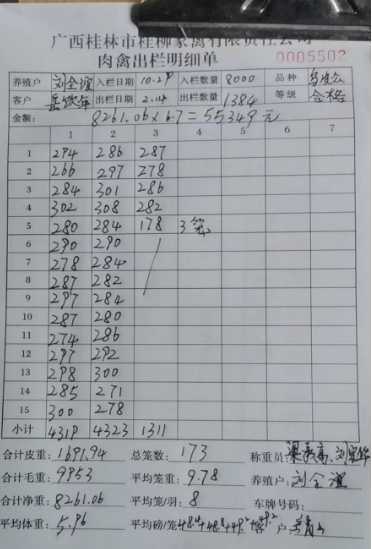 广西桂林市桂柳家禽有限责任公司
肉禽出栏明细单
0005502
养殖户 刘全谊 入栏日期 10.29 入栏数量 8000 品种
客户 出栏日期 2.04 出栏数量 1384 等级 合格
金额: 8261.06×6.7=55349元
1 2 3 4 5 6 7
1 294 286 287
2 266 297 278
3 284 301 286
4 302 308 282
5 280 284 178 3笼
6 290 290
7 278 284
8 287 282
9 297 284
10 287 280
11 274 286
12 297 292
13 298 300
14 285 271
15 300 278
小计 4319 4323 1311
合计皮重: 1691.94 总笼数: 173 称重员:
合计毛重: 9953 平均笼重: 9.78 养殖户: 刘全谊
合计净重: 8261.06 平均笼/羽: 8 车牌号码:
平均体重: 5.96 平均磅/笼 客户